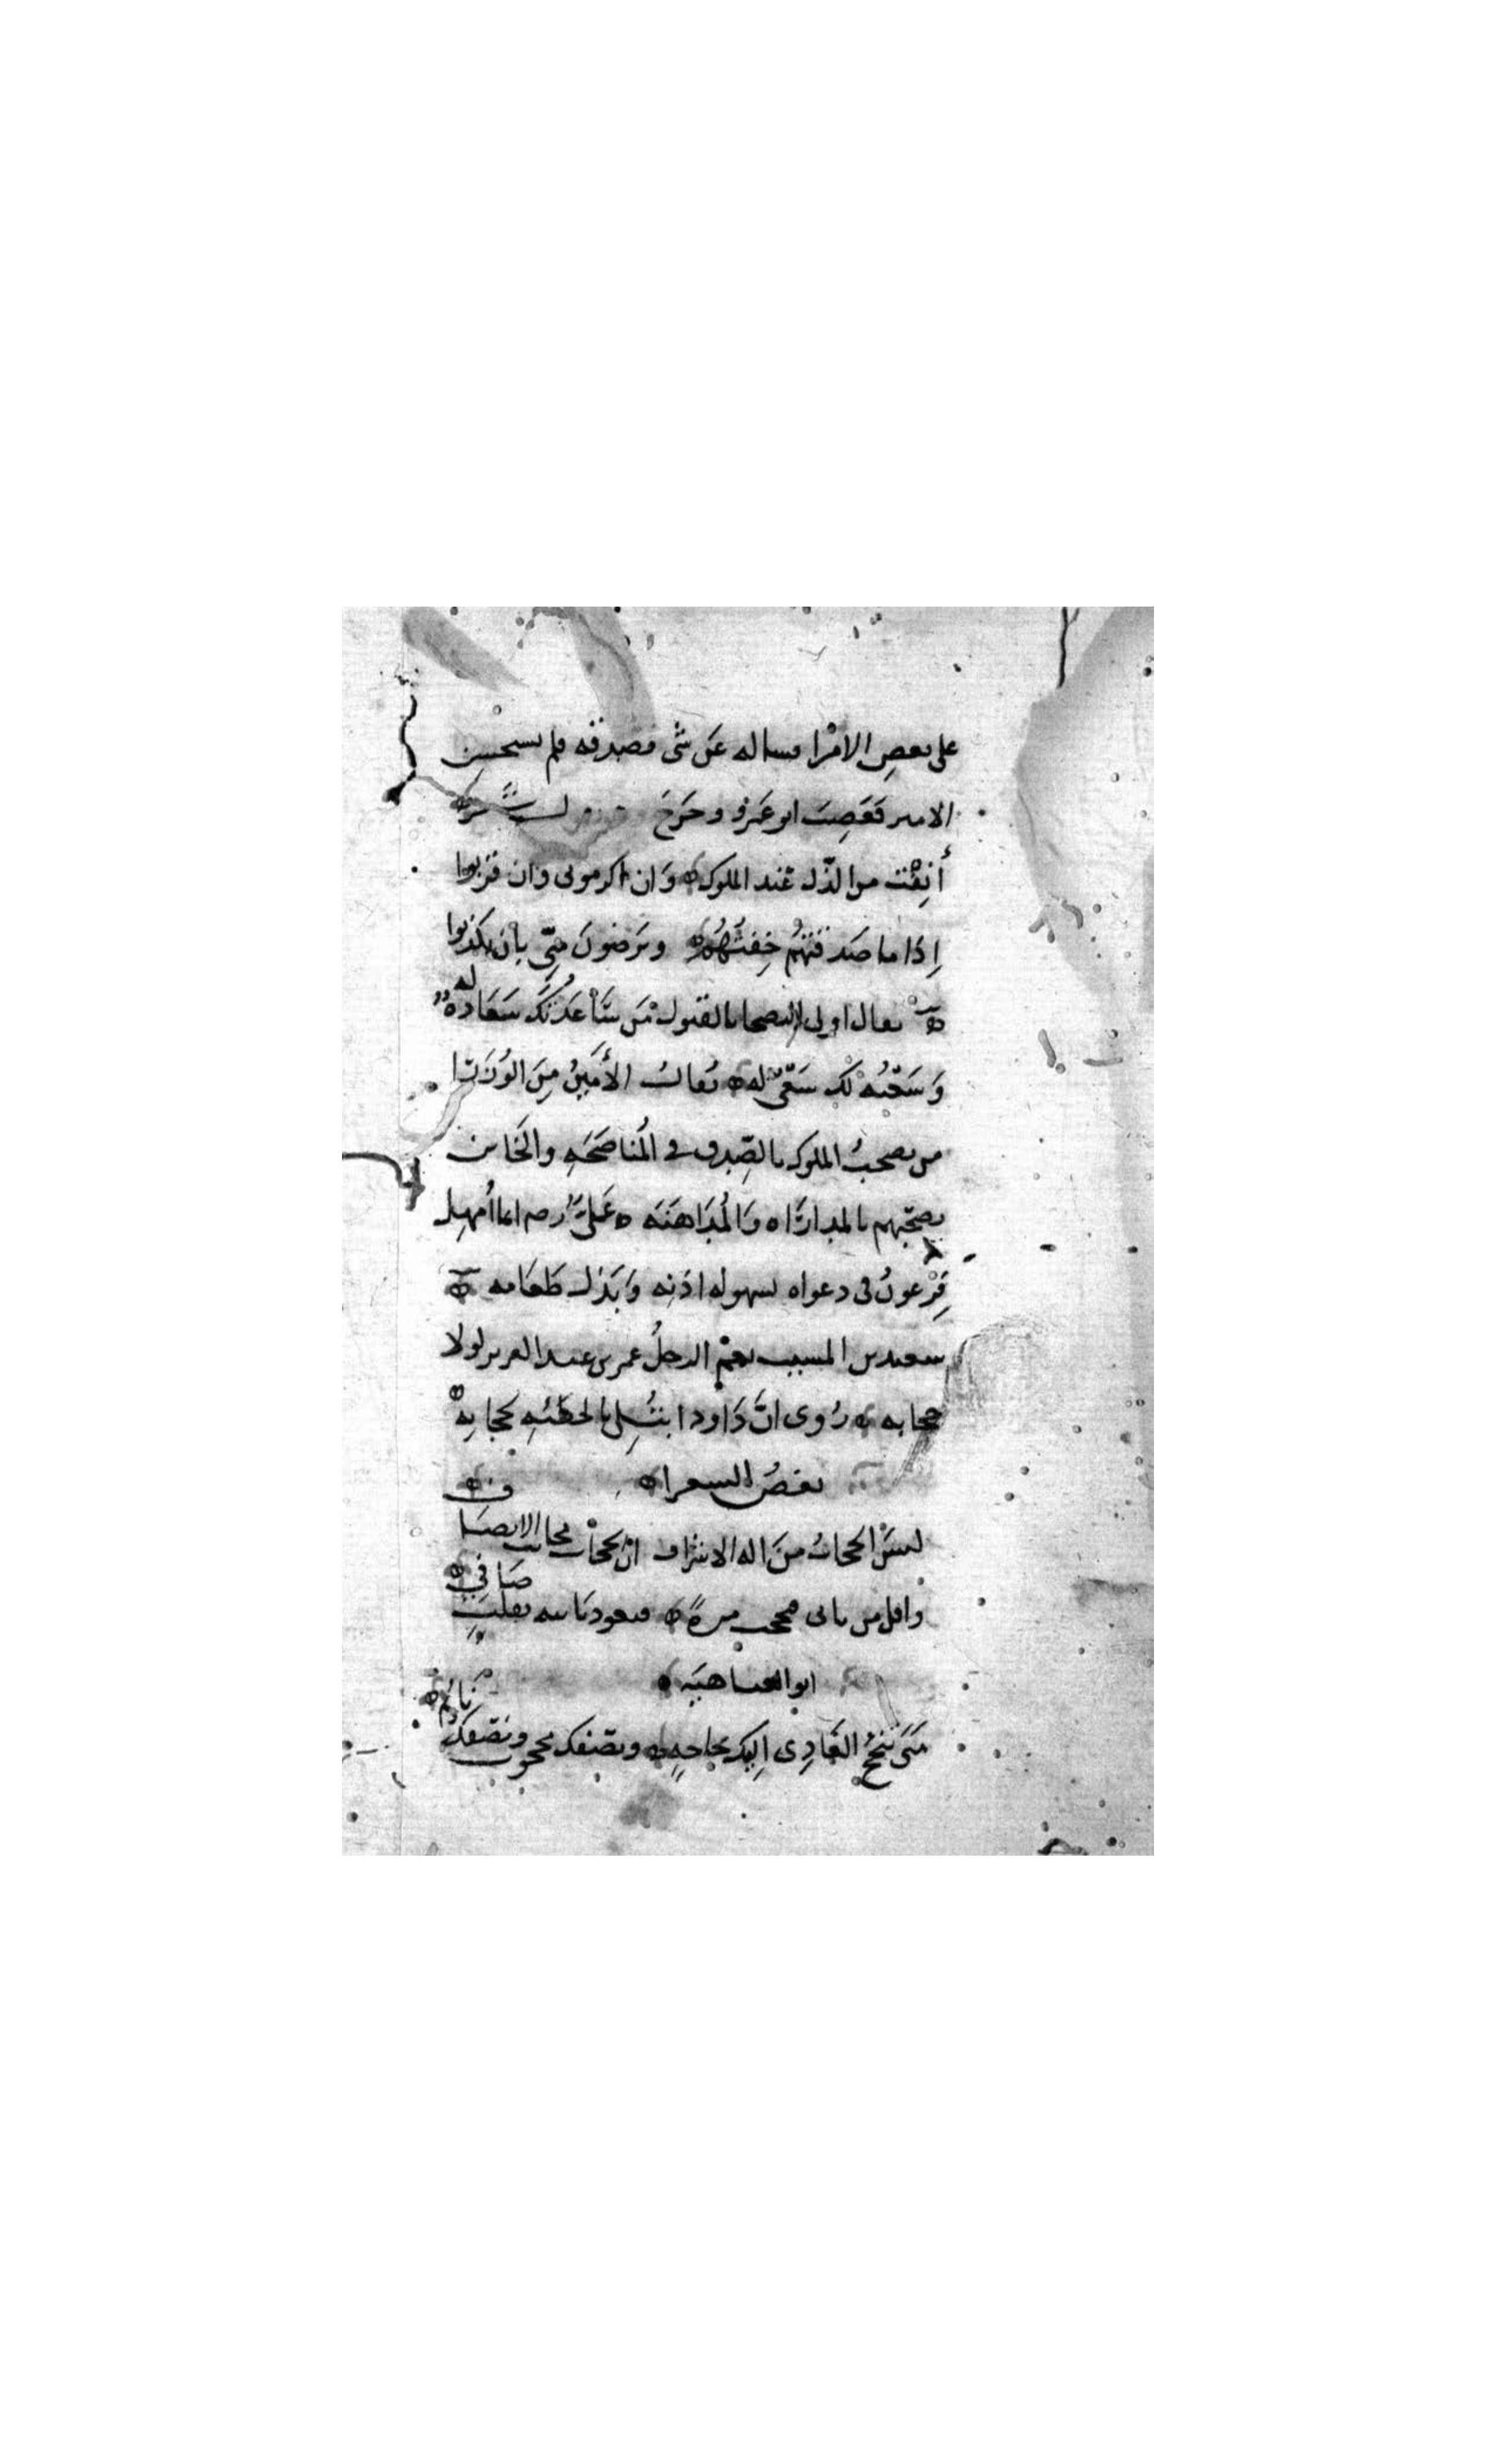 على بعض الامرا فساله عن شى فصدقه فلم يستحسن
الامير فغضب ابو عمرو وخرج
أنفت من الذل عند الملوك وان اكرمونى وان قربوا
اذا ما صدقتهم خفتهم ويرضون منى بان يكذبوا
يقال اولى النصحا بالقبول من سَاعدتك سعادة له
وسعيه لك سعى له يقال الأمين من الوزرا
من يصحب الملوك بالصدق فى المناصحه والخاين
يصحبهم بالمداراه والمداهنه على انما أمهل
فرعون فى دعواه لسهوله اذنه وبذل طعامه
سعيد بن المسيب نعم الرجل عمر بن عبد العزيز لولا
حجابه روى ان داود ابتلى بالخطيئه لحجابه
بعض الشعرا
ليس الحجاب من اله الاشراف ان الحجاب مجانب الانصاف
واقل من ياتى فيحجب مرة فيعود ثانيه بقلب صافي
ابو العتاهيه
متى ينجح الغادى اليك بحاجه ونصفك محجوب ونصفك نائم